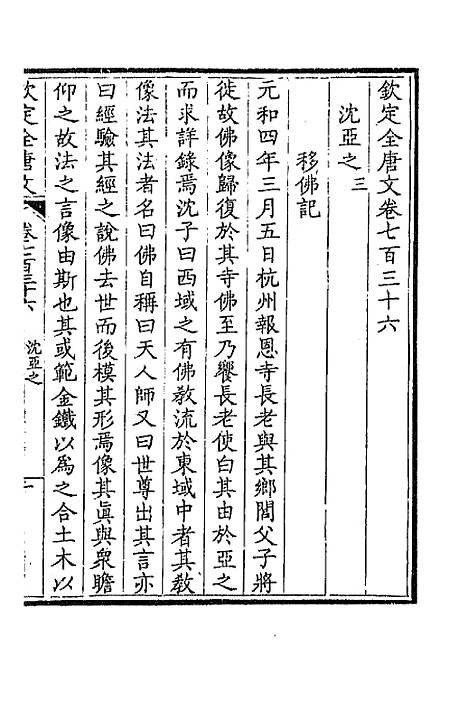 欽定全唐文卷七百三十六
沈亞之三
移佛記
元和四年三月五日杭州報恩寺長老與其鄉閭父子將
徙故佛像歸復於其寺佛至乃饗長老使白其由於亞之
而求詳錄焉沈子曰西域之有佛教流於東域中者其教
像法其法者名曰佛自稱曰天人師又曰世尊出其言亦
曰經驗其經之說佛去世而後模其形焉像其眞與衆瞻
仰之故法之言像由斯也其或範金鐵以為之合土木以
欽定全唐文
卷七百三十六
沈亞之
一